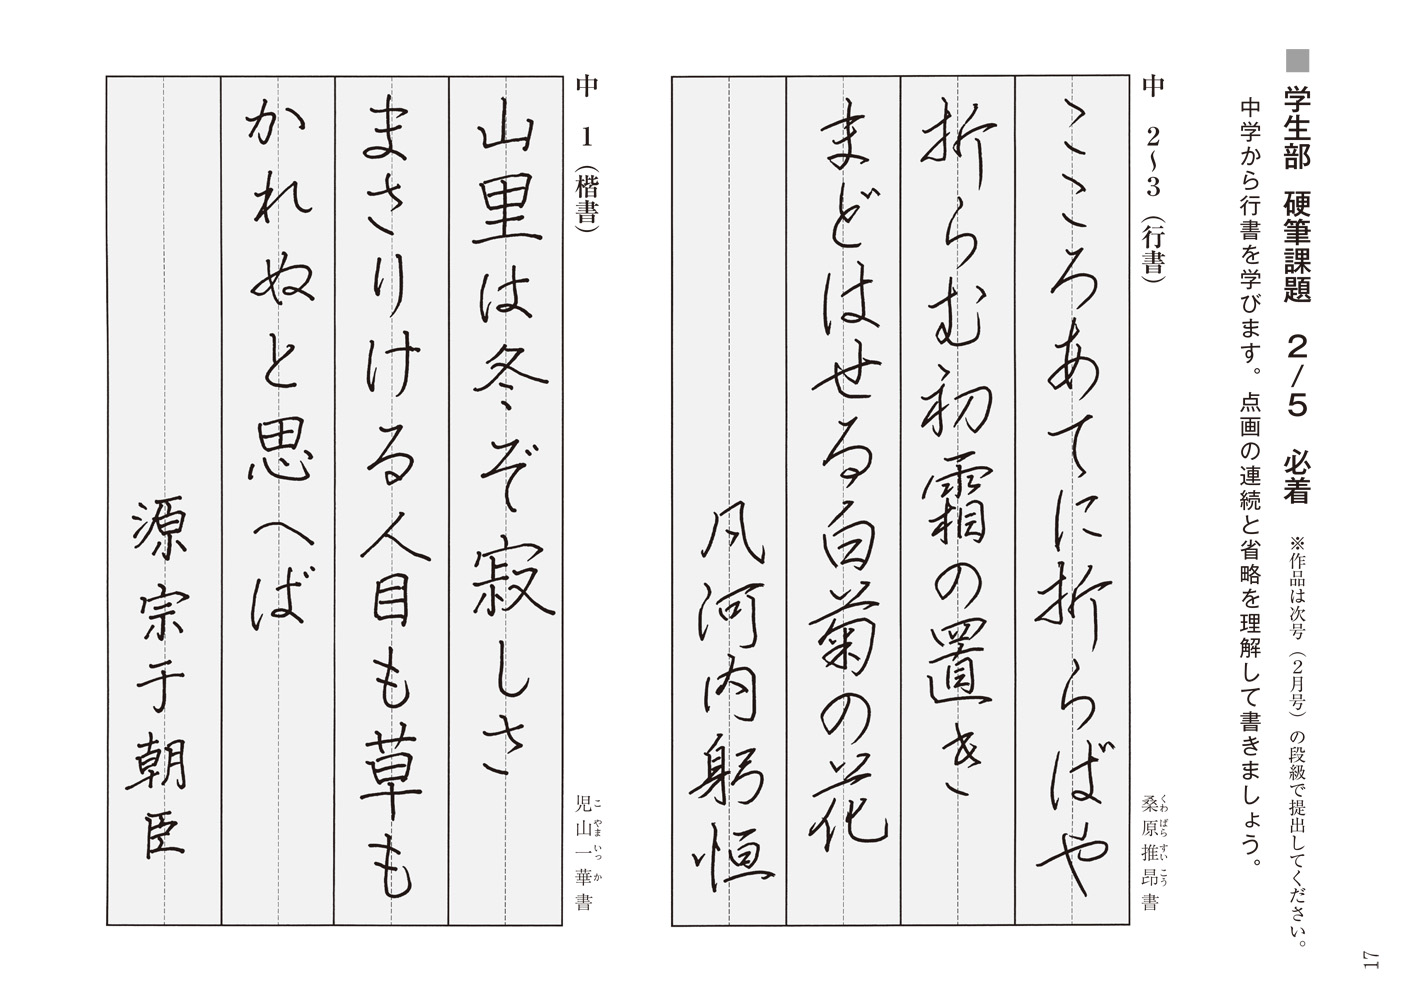 ■学生部 硬筆課題 2/5 必着 ※作品は次号（2月号）の段級で提出してください。
中学から行書を学びます。点画の連続と省略を理解して書きましょう。
中 2〜3（行書）
桑原推昂書
くわばらすいこう
こころあてに折らばや
折らむ初霜の置き
まどはせる白菊の花
凡河内躬恒
中 1（楷書）
児山一華書
こやまいっか
山里は冬ぞ寂しさ
まさりける人目も草も
かれぬと思へば
源宗于朝臣
17